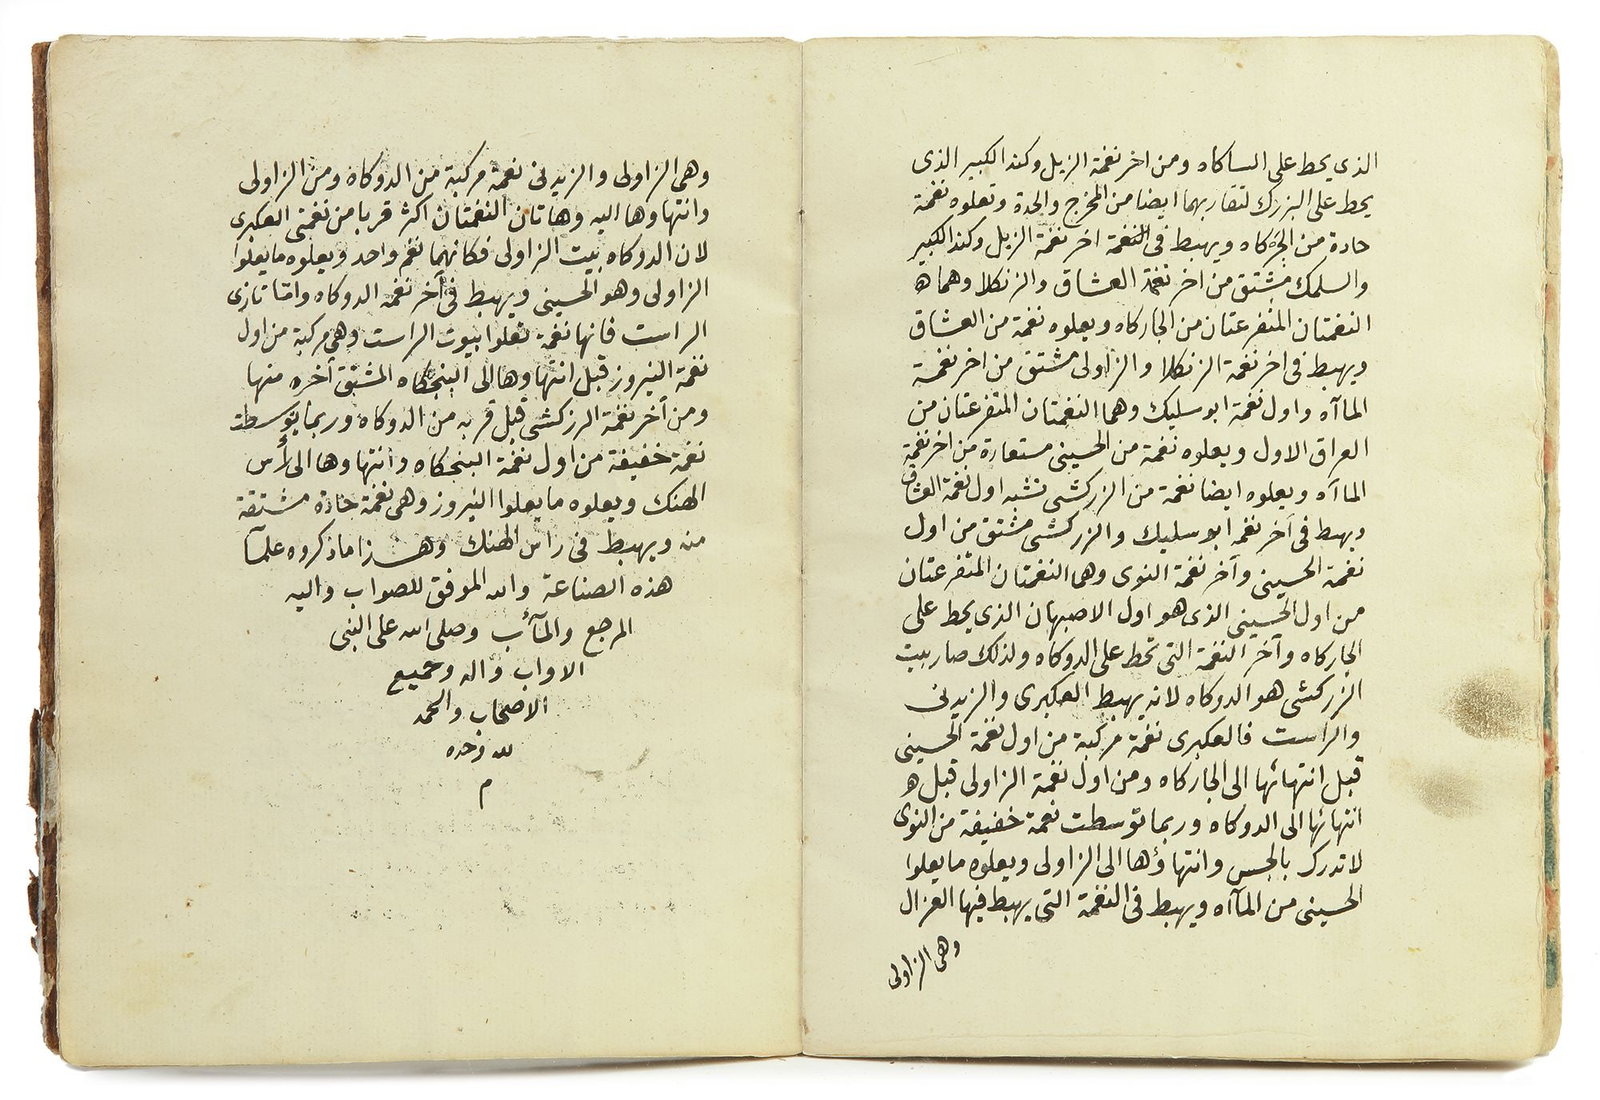 الذى يحط على الساكاه ومن اخر نغمة الزيل وكند الكبير الذى
يحط على البزرك لتقاربهما ايضا من المخرج والحدة وتعلوه نغمة
حادة من الجركاه ويهبط فى النغمة اخر نغمة الزيل وكند الكبير
والسلمك مشتق من اخر نغمة العشاق والزنكلا وهما ه
النغمتان المتفرعتان من الجاركاه ويعلوه نغمة من العشاق
ويهبط فى اخر نغمة الزنكلا والزاولى مشتق من اخر نغمة
الماآه واول نغمة ابوسليك وهما النغمتان المتفرعتان من
العراق الاول ويعلوه نغمة من الحسينى مستعارة من اخر نغمة
الماآه ويعلوه ايضا نغمة من الزركشى نشبه اول نغمة العشاق
ويهبط فى آخر نغمه ابوسليك والزركشى مشتق من اول
نغمة الحسينى وآخر نغمة النوى وهما النغمتان المتفرعتان
من اول الحسينى الذى هو اول الاصبهان الذى يحط على
الجاركاه وآخر النغمة التى تحط على الدوكاه ولذلك صار بيت
الزركشى هو الدوكاه لانه يهبط العكبرى والزيدنى
والراست فالعكبرى نغمة مركبة من اول نغمة الحسينى
قبل انتهائها الى الجاركاه ومن اول نغمة الزاولى قبل ه
انتهائها الى الدوكاه وربما توسطت نغمة خفيفة من النوى
لا تدرك بالحس وانتهاؤها الى الزاولى ويعلوه ما يعلوا
الحسينى من الماآه ويهبط فى النغمة التى يهبط فيها الغزال
وهى الزاولى
وهى الزاولى والزيدنى نغمة مركبة من الدوكاه ومن الزاولى
وانتهاوها اليه وهاتان النغمتان اكثر قربا من نغمتى العكبرى
لان الدوكاه بيت الزاولى فكانهما نغم واحد ويعلوه ما يعلوا
الزاولى وهو الحسينى ويهبط فى آخر نغمه الدوكاه وامّا تازى
الراست فانها نغمة تعلوا بيوت الراست وهى مركبة من اول
نغمة النيروز قبل انتهاوها الى البنجكاه المشتق آخره منها
ومن آخر نغمة الزركشى قبل قربه من الدوكاه وربما توسطت
نغمة خفيفة من اول نغمة البنجكاه وانتهاوها الى رأس
الهنك ويعلوه ما يعلوا النيروز وهى نغمة حادة مشتقة
منه ويهبط فى راس الهنك وهذا ما ذكروه علمآ
هذه الصناعة والله الموفق للصواب واليه
المرجع والمآب وصلى الله على النبى
الاواب واله وجميع
الاصحاب والحمد
لله وحده
م